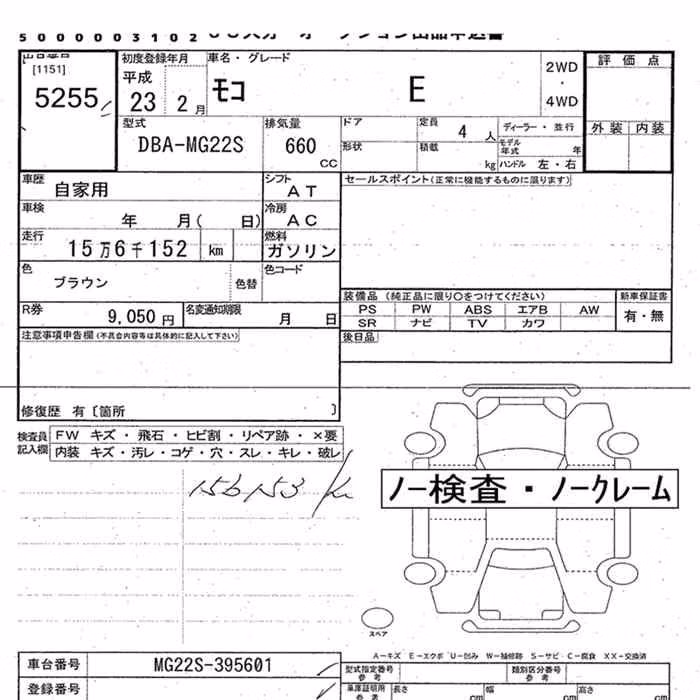 5000003102
[1151]
5255
初度登録年月
平成
23 2月
車名・グレード
モコ E
2WD
・
4WD
評価点
外装 内装
型式
DBA-MG22S
排気量
660
CC
ドア
定員
4 人
ディーラー・並行
形状
積載
kg
モデル年式 年
ハンドル 左・右
車歴
自家用
シフト
AT
セールスポイント(正常に機能するものに限ります)
車検
年 月( 日)
冷房
AC
走行
15万6千152 km
燃料
ガソリン
色
ブラウン
色替
色コード
R券
9,050円
名変通知期限
月 日
装備品 (純正品に限り○をつけてください)
PS PW ABS エアB AW
SR ナビ TV カワ
新車保証書
有・無
後日品
注意事項申告欄(不具合内容等は具体的に記入して下さい)
修復歴 有〔箇所 〕
検査員記入欄
FW キズ・飛石・ヒビ割・リペア跡・×要
内装 キズ・汚レ・コゲ・穴・スレ・キレ・破レ
156153
ノー検査・ノークレーム
スペア
A-キズ E-エクボ U-凹み W-補修跡 S-サビ C-腐食 XX-交換済
車台番号
MG22S-395601
型式指定番号
参考
類別区分番号
参考
登録番号
車庫証明用
参考
長さ cm
幅 cm
高さ cm